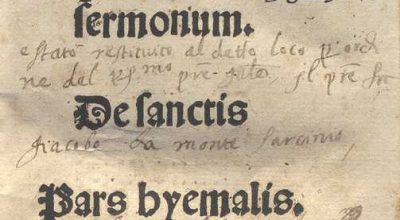 sermonum.
e stato restituito al detto loco p ordi
ne del R.mo pre gnle, il pre fra
De sanctis
Jiacobo da monte sarcinio,
Pars hyemalis.